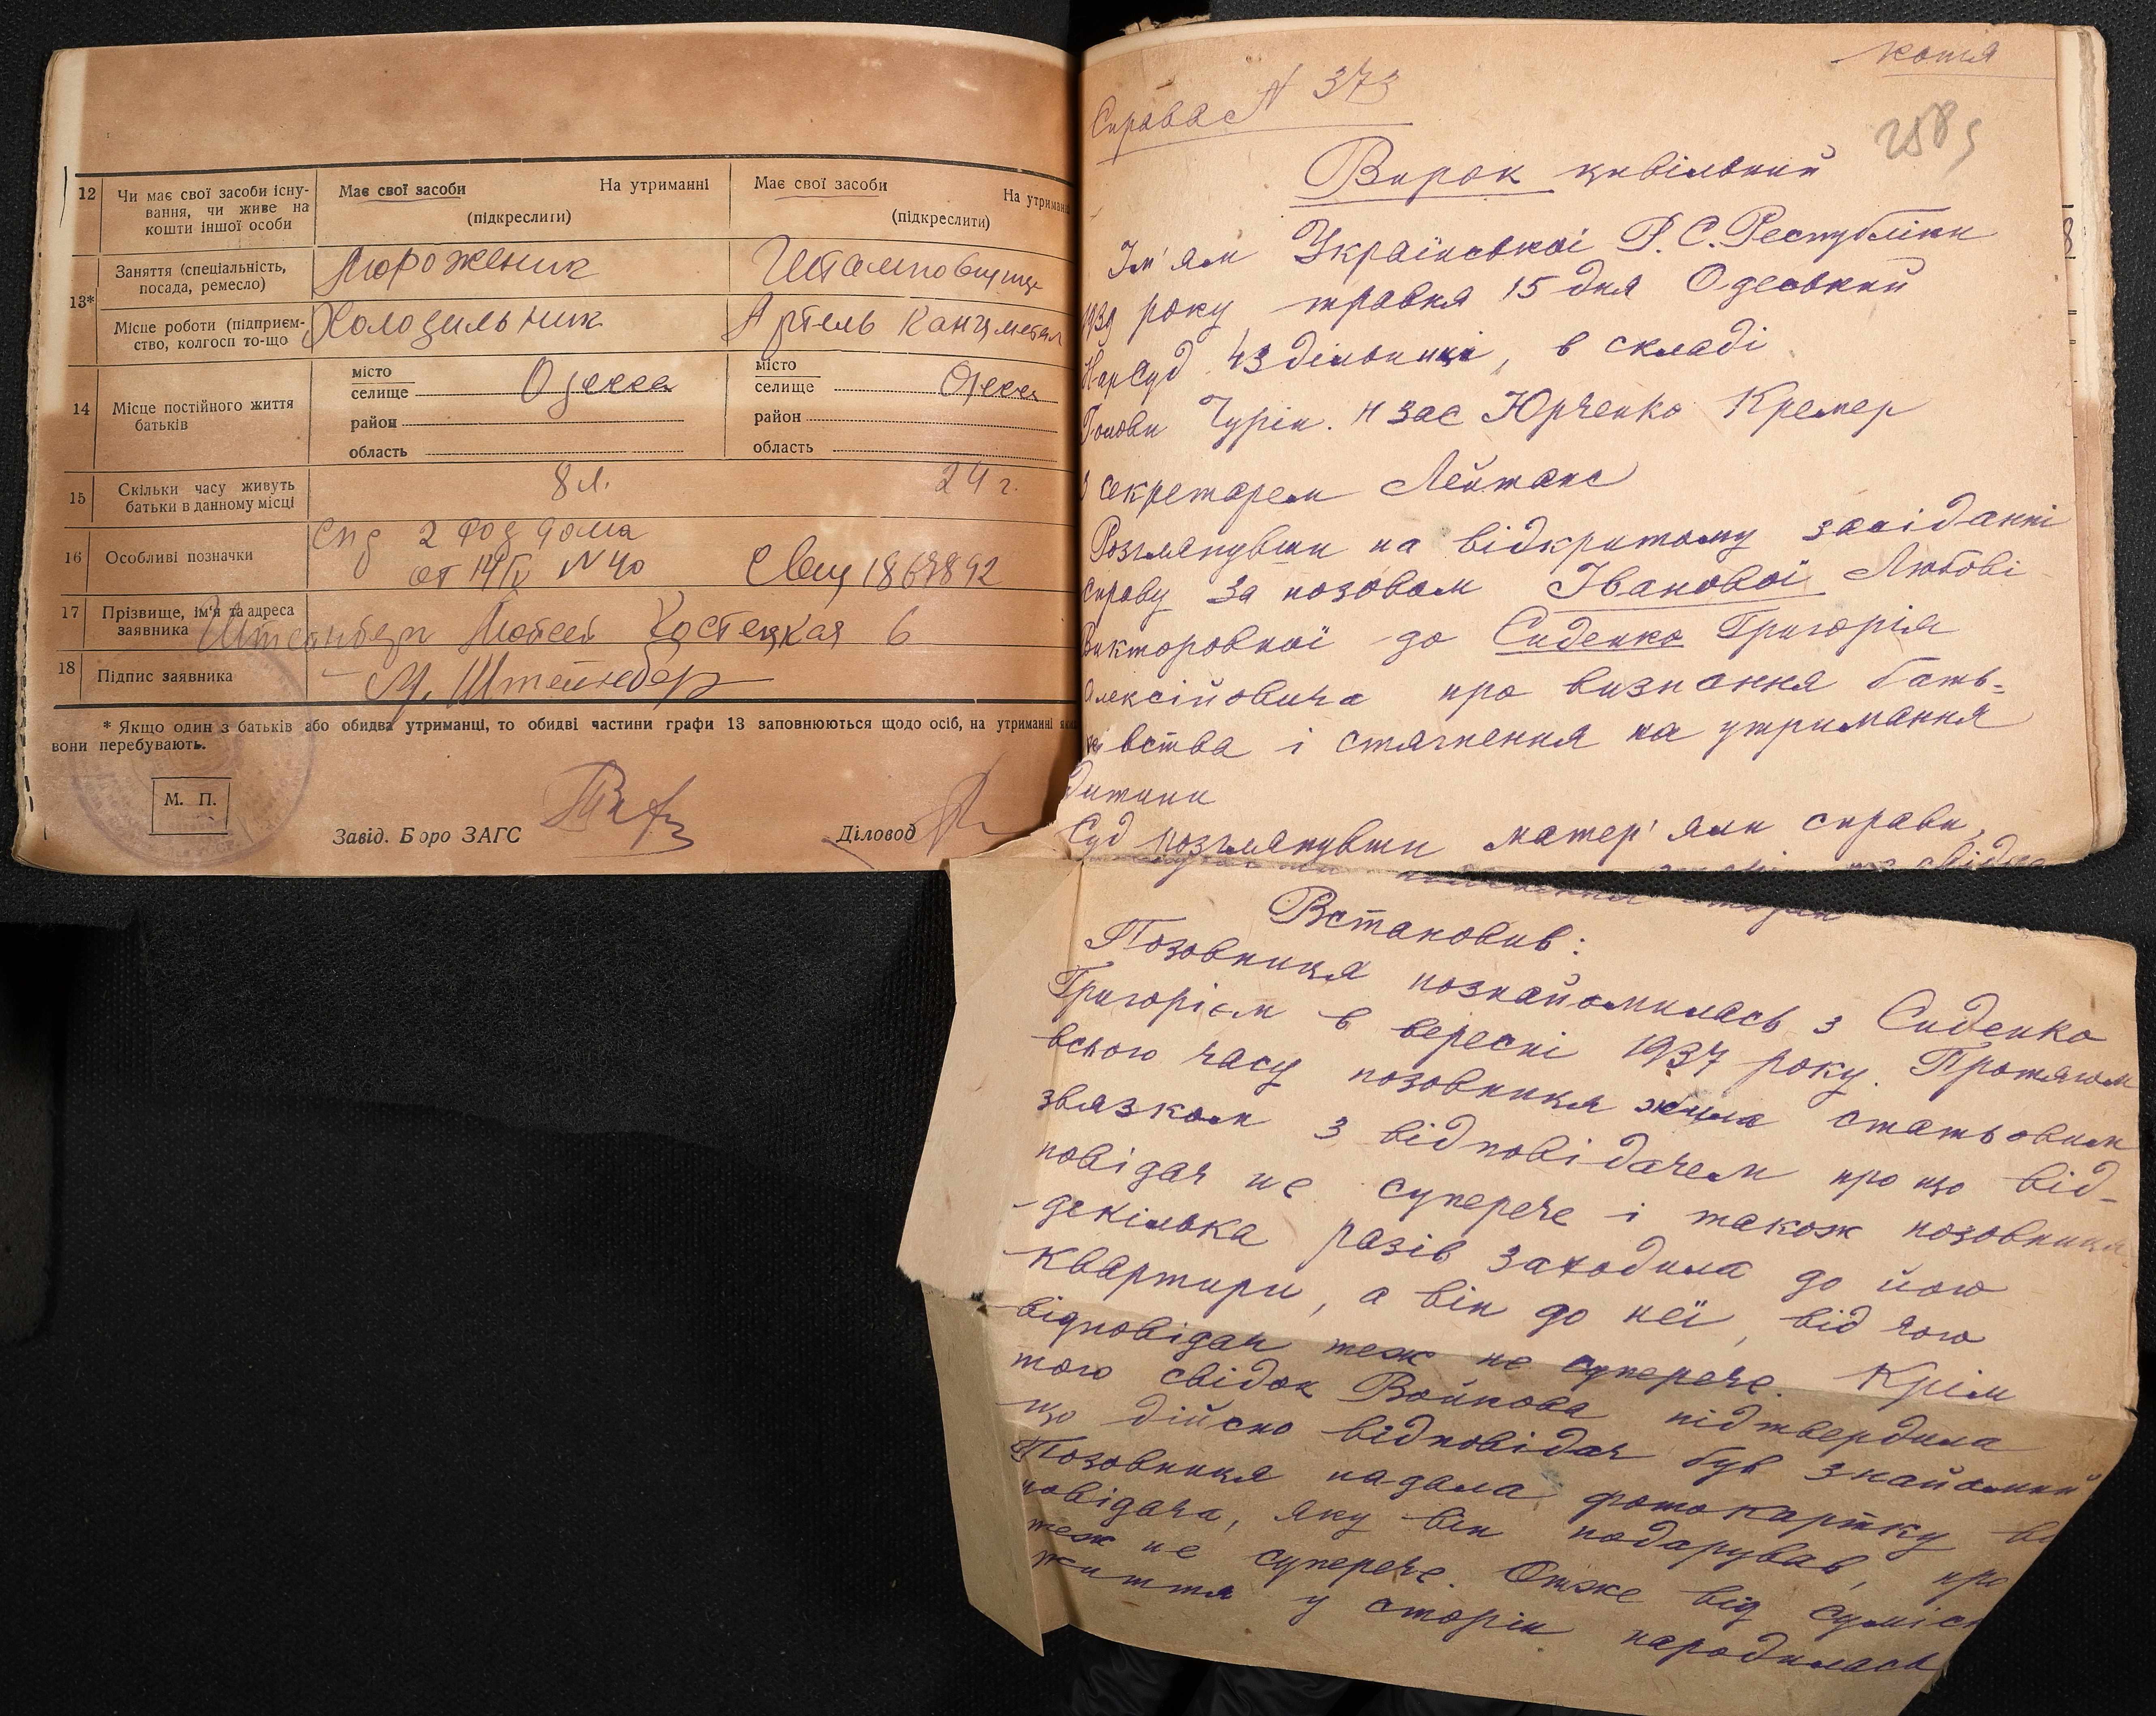 12 Чи має свої засоби існу-
вання, чи живе на
кошти іншої особи
Має свої засоби На утриманні
(підкреслити)
Має свої засоби На утриманні
(підкреслити)
13*
Заняття (спеціальність,
посада, ремесло)
Мороженик
Штамповщица
Місце роботи (підприєм-
ство, колгосп то-що
Холодильник
Артель Канцметал
14 Місце постійного життя
батьків
місто
селище Одесса
район
область
місто
селище Одесса
район
область
15 Скільки часу живуть
батьки в данному місці
8 л.
24 г.
16 Особливі позначки
Спр 2 Род дома
от 14/IV N 40
Свид 1867892
17 Прізвище, ім'я та адреса
заявника
Штейнберг Мойсей Костецкая 6
18 Підпис заявника
М. Штейнберг
* Якщо один з батьків або обидва утриманці, то обидві частини графи 13 заповнюються щодо осіб, на утриманні яких
вони перебувають.
М. П.
Завід. Бюро ЗАГС
Діловод
копія
Справа N 373
Вирок цивільний
Ім'ям Української Р.С.Республіки
1939 року травня 15 дня Одеський
НарСуд 43 дільниці, в складі
Голови Чурін. Н зас Юрченко Кремер
з секретарем Лейтанс
Розглянувши на відкритому засіданні
справу за позовом Іванової Любові
Викторовної до Сиденко Григорія
Алексійовича про визнання бать=
ківства і стягнення на утримання
дитини
Суд розглянувши матер'яли справи,
сторін
Встановив:
Позовниця познайомилась з Сиденко
Григорієм в вересні 1937 року. Протягом
всього часу позовниця жила статьовим
звязком з відповідачем про що від-
повідач не суперече і також позовниця
декілька разів заходила до його
квартири, а він до неї, від чого
відповідач теж не суперече. Крім
того свідок Войнова підтвердила
що дійсно відповідач був знайомий
Позовниця надала фотокартку ві
повідача, яку він подарував, про
теж не суперече. Отже від суміс
життя у сторін народилась